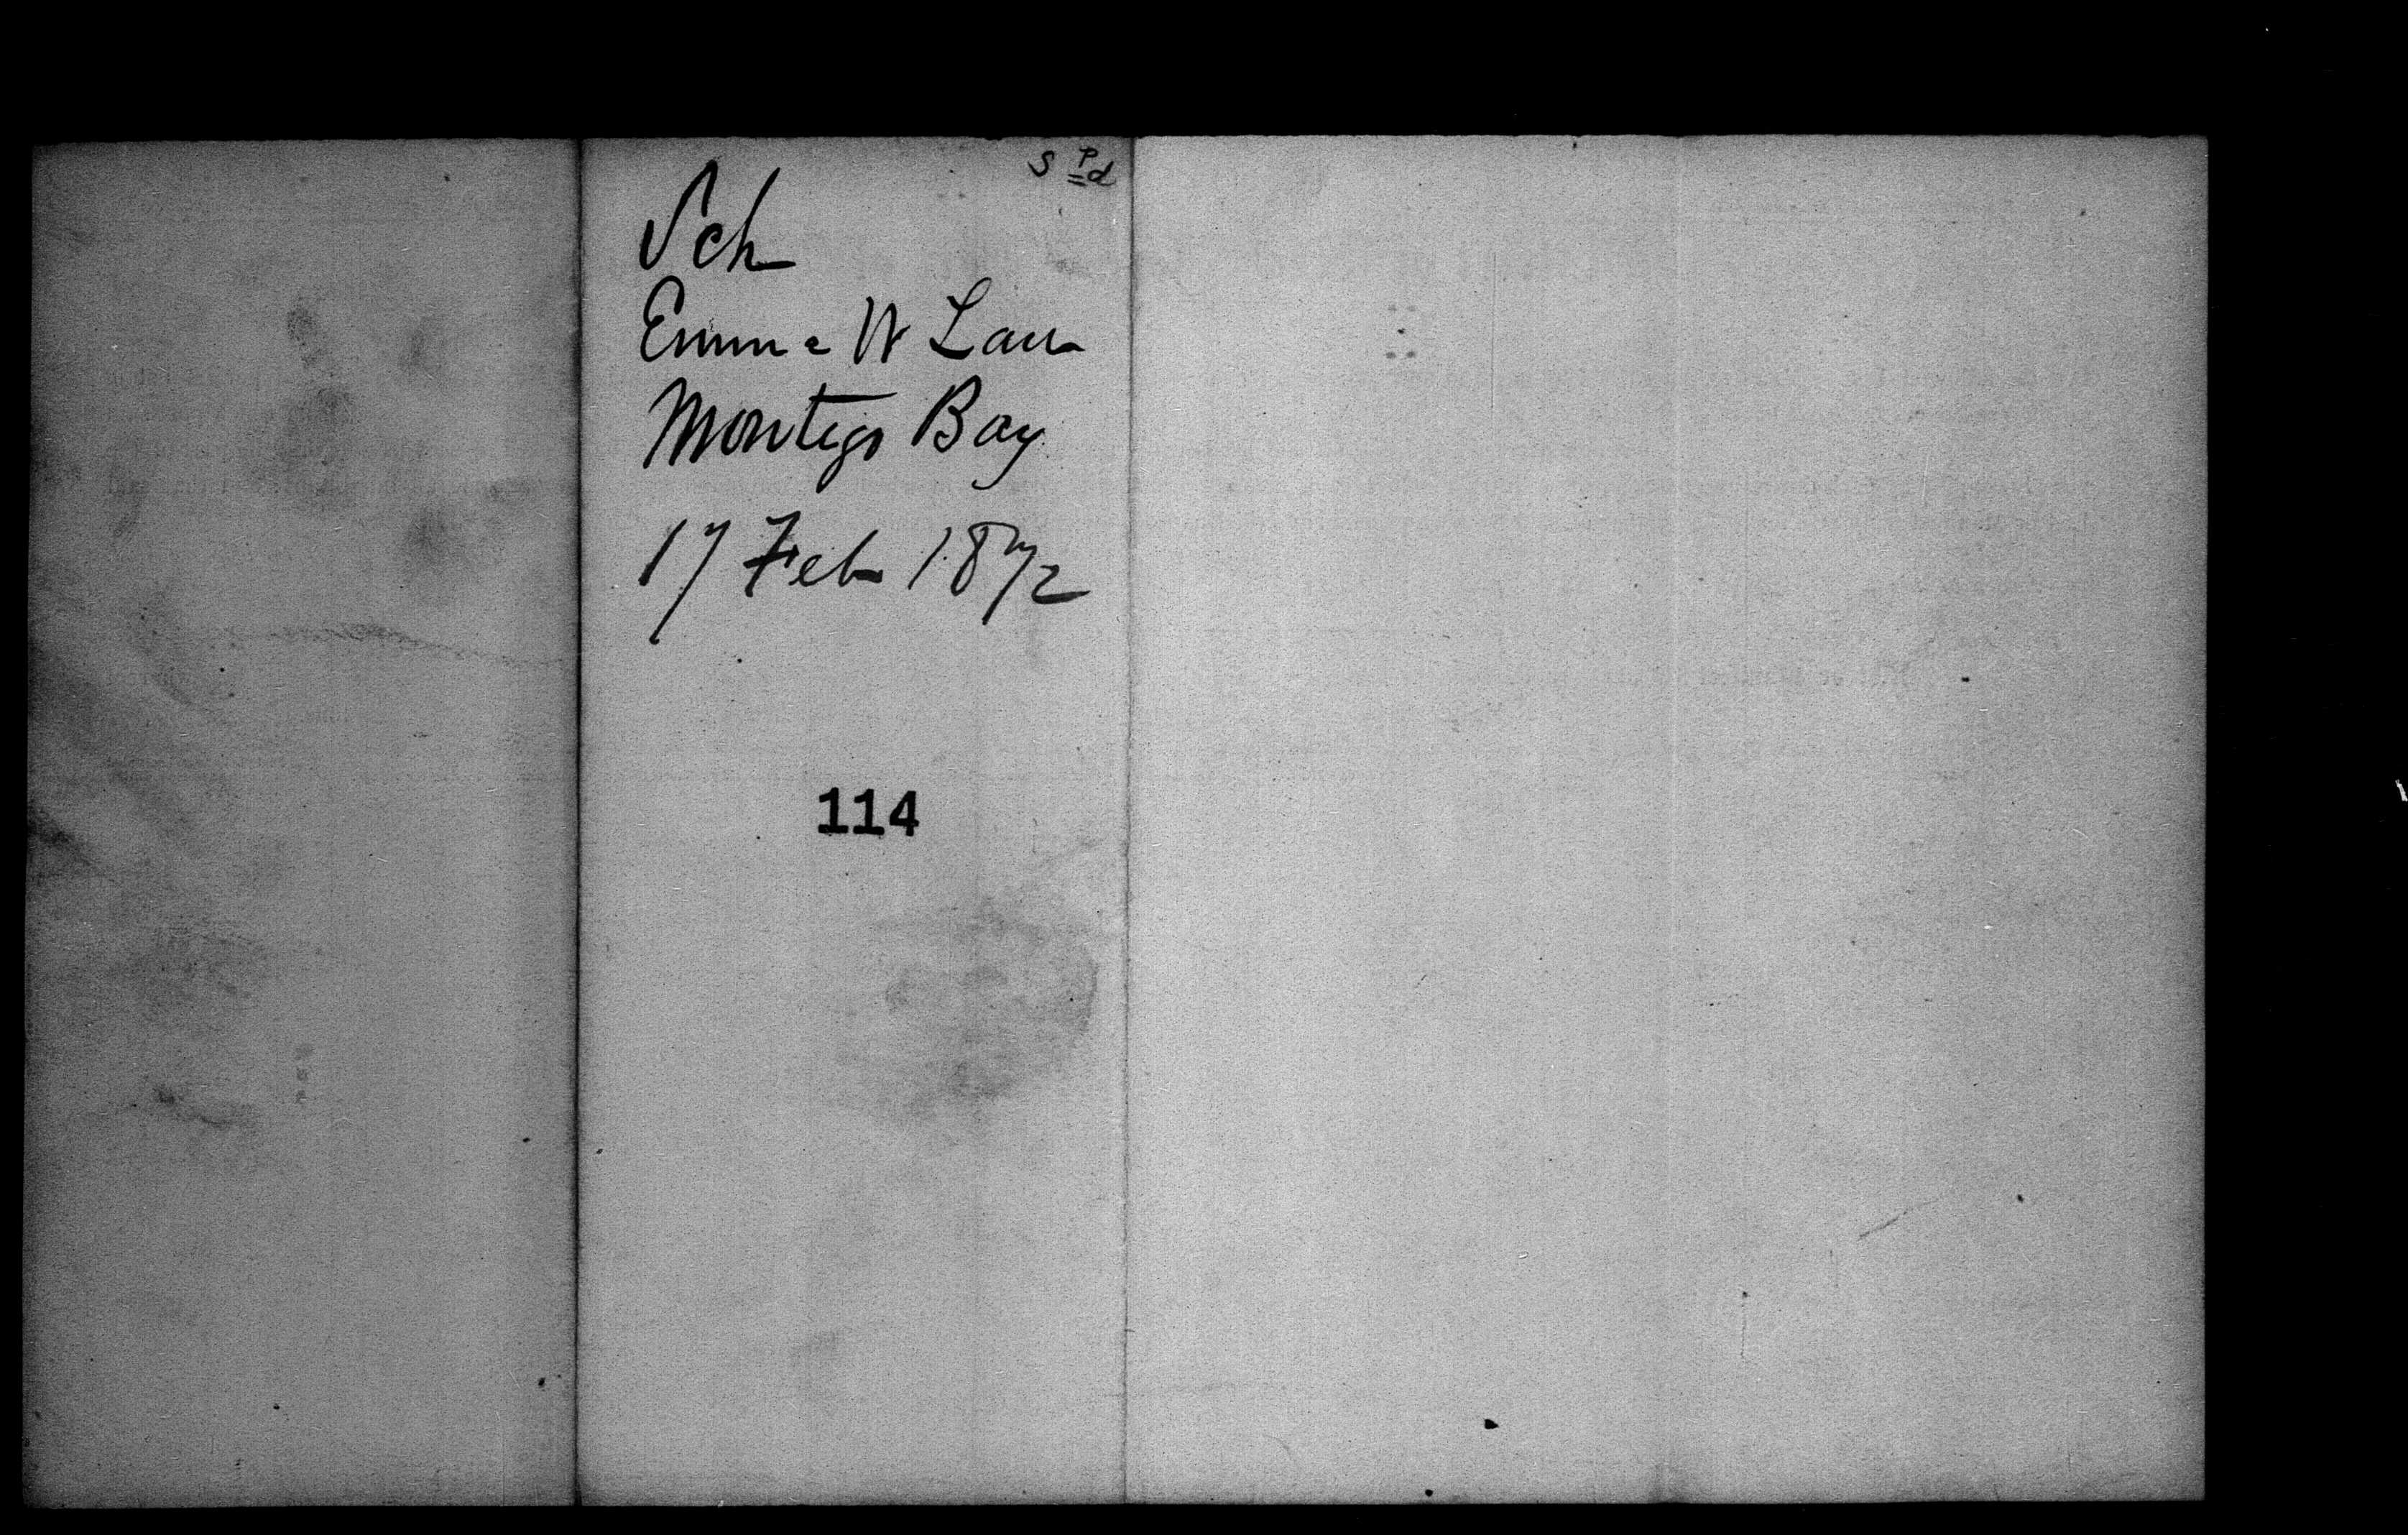 S Pd
Sch
Emma W Law
Montego Bay
17 Feb 1872
114